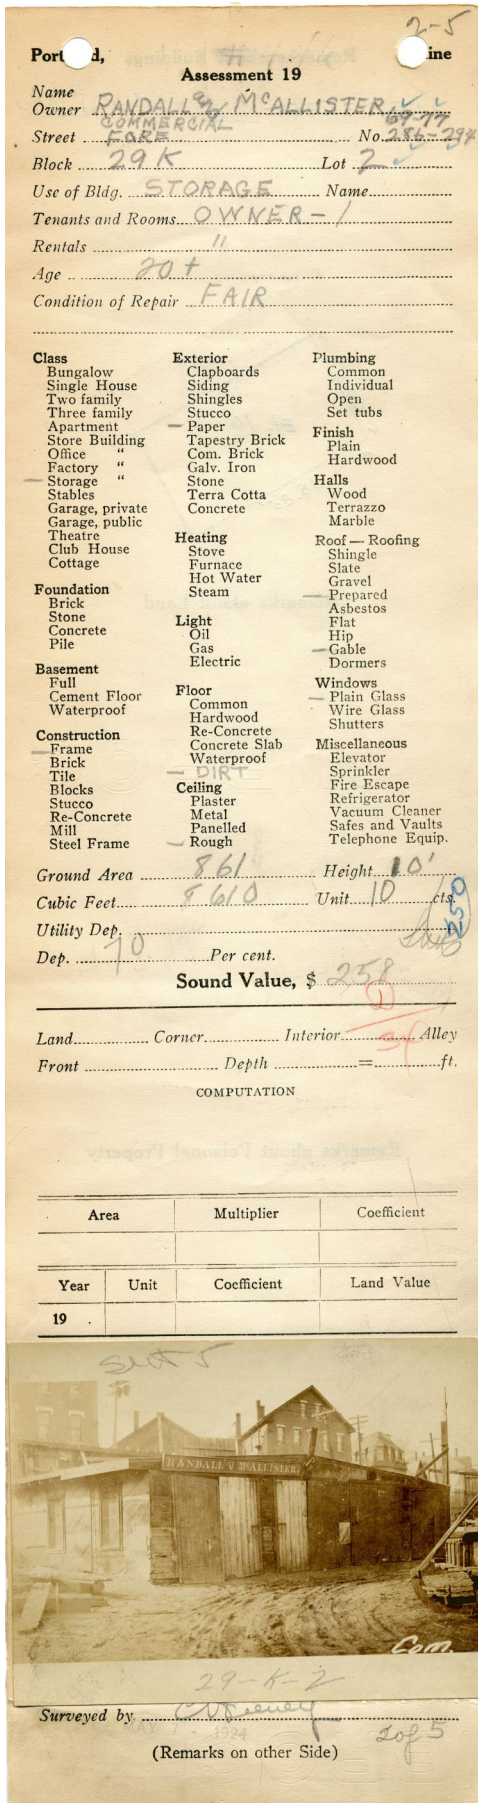 2-5
Portland, Maine
Assessment 19
Name
Owner RANDALL and McALLISTER
COMMERCIAL 69-77
Street FORE No. 286-294
Block 29K Lot 2
Use of Bldg. STORAGE Name
Tenants and Rooms OWNER - 1
Rentals "
Age 20+
Condition of Repair FAIR
Class
Bungalow
Single House
Two family
Three family
Apartment
Store Building
Office "
Factory "
Storage "
Stables
Garage, private
Garage, public
Theatre
Club House
Cottage
Foundation
Brick
Stone
Concrete
Pile
Basement
Full
Cement Floor
Waterproof
Construction
Frame
Brick
Tile
Blocks
Stucco
Re-Concrete
Mill
Steel Frame
Exterior
Clapboards
Siding
Shingles
Stucco
Paper
Tapestry Brick
Com. Brick
Galv. Iron
Stone
Terra Cotta
Concrete
Heating
Stove
Furnace
Hot Water
Steam
Light
Oil
Gas
Electric
Floor
Common
Hardwood
Re-Concrete
Concrete Slab
Waterproof
DIRT
Ceiling
Plaster
Metal
Panelled
Rough
Plumbing
Common
Individual
Open
Set tubs
Finish
Plain
Hardwood
Halls
Wood
Terrazzo
Marble
Roof — Roofing
Shingle
Slate
Gravel
Prepared
Asbestos
Flat
Hip
Gable
Dormers
Windows
Plain Glass
Wire Glass
Shutters
Miscellaneous
Elevator
Sprinkler
Fire Escape
Refrigerator
Vacuum Cleaner
Safes and Vaults
Telephone Equip.
Ground Area 861 Height 10'
Cubic Feet 8610 Unit 10 cts.
250
Utility Dep.
Dep. 70 Per cent.
Sound Value, $ 258
D
34
Land Corner Interior Alley
Front Depth = ft.
COMPUTATION
Area Multiplier Coefficient
Year Unit Coefficient Land Value
19 .
Sect 5
RANDALL & McALLISTER
Com.
29-K-2
Surveyed by
MAY 1924
2 of 5
(Remarks on other Side)